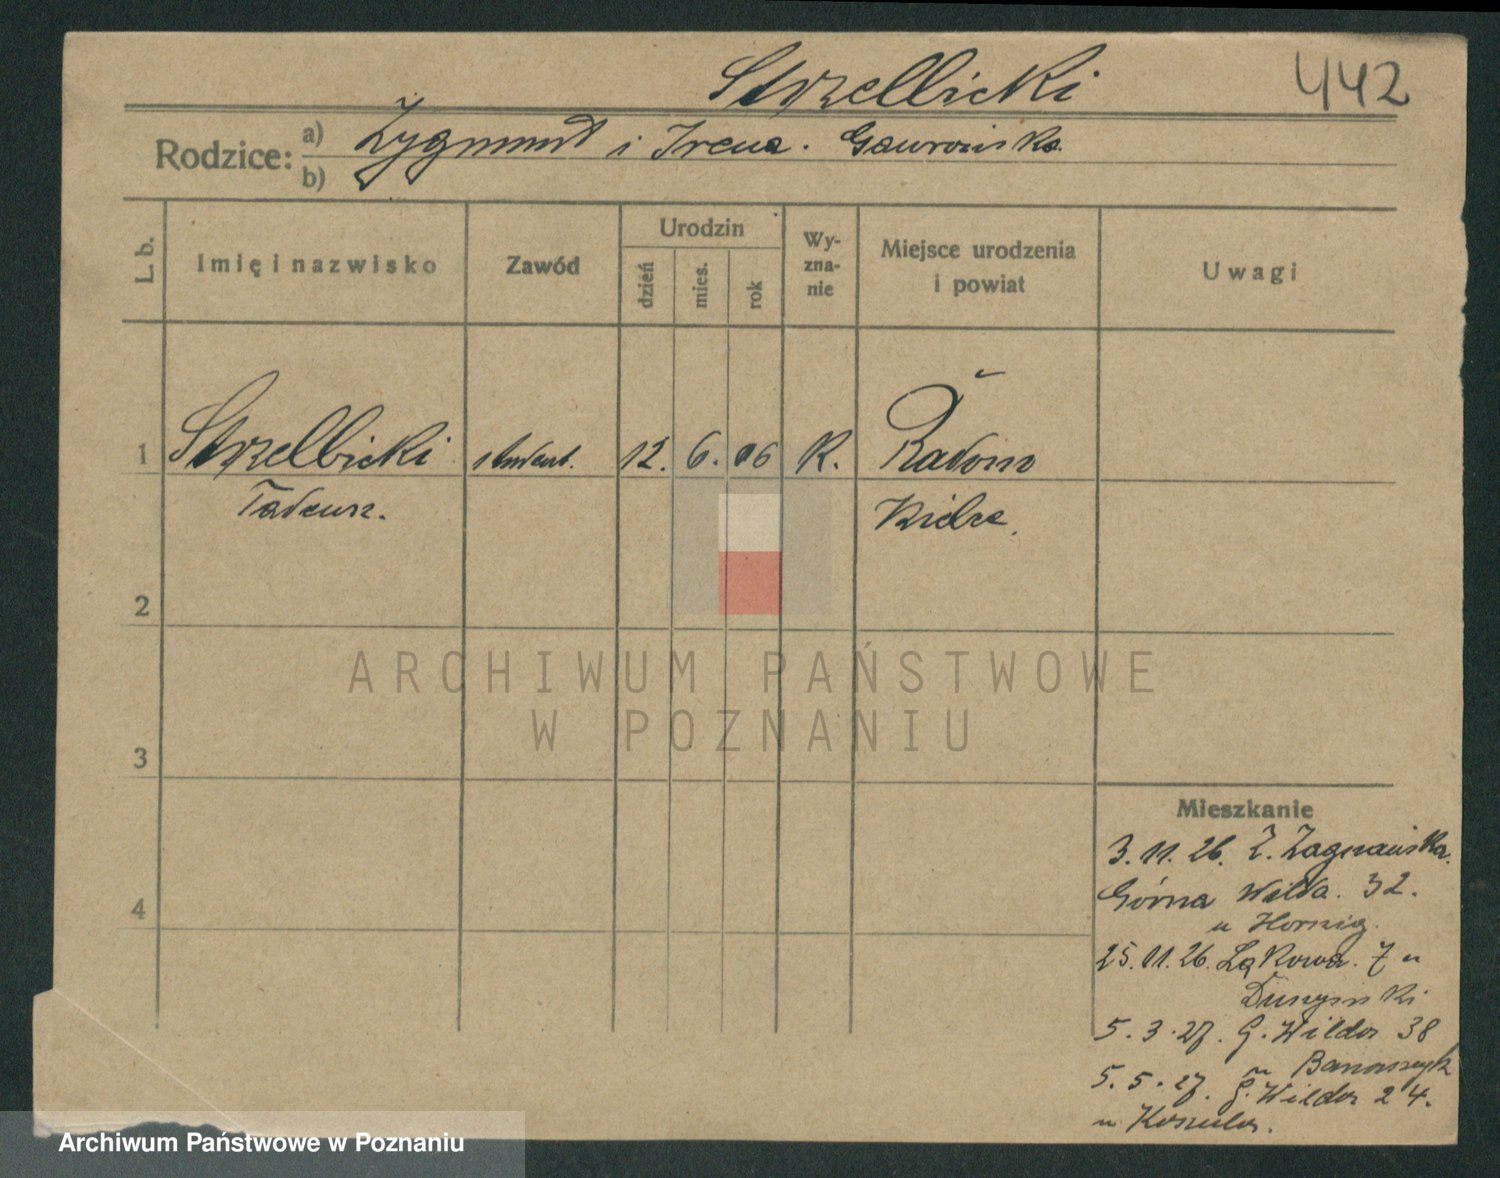 Strzelbicki 442
Rodzice: a) Zygmunt i Irena. Gawrońska
b)
L. b. Imię i nazwisko Zawód Urodzin dzień mies. rok Wy-zna-nie Miejsce urodzenia i powiat Uwagi
1 Strzelbicki student. 12. 6. 06 K. Radom
Tadeusz. Kielce.
2
ARCHIWUM PAŃSTWOWE
W POZNANIU
3
Mieszkanie
3.11.26. Z. Zagnańska.
4 Górna Wilda. 32.
u Hornig.
25.11.26. Łąkowa. 7 u
5.3.27. G. Wilda 38
u
5.5.27. G. Wilda 24.
u
Archiwum Państwowe w Poznaniu